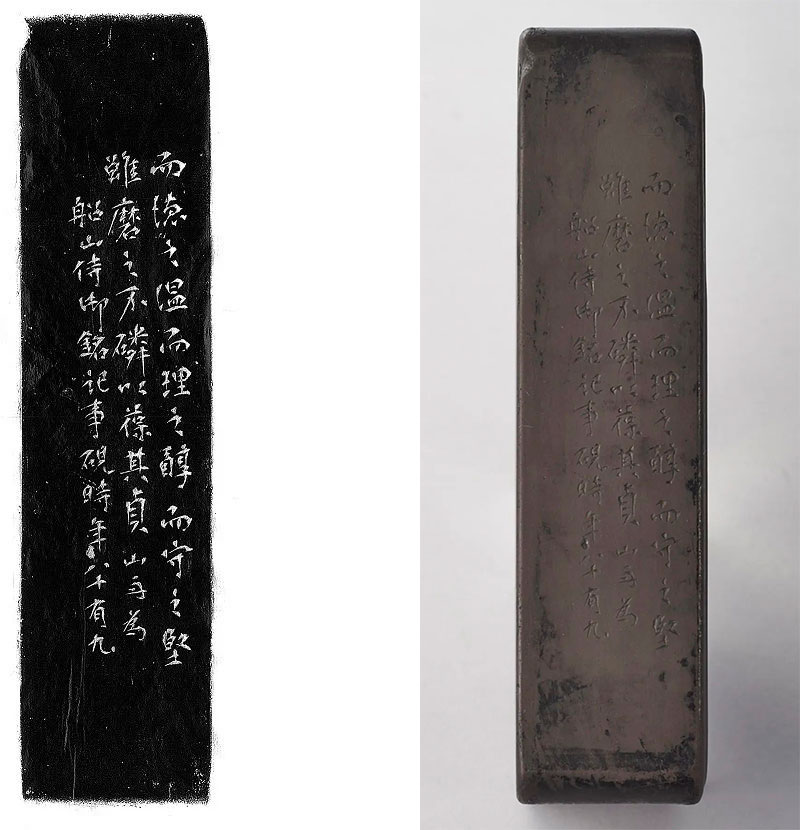 而德之溫而理之醇而守之堅
雖磨之不磷以葆其貞山舟為
船山侍御銘記事硯時年八十有九
而德之溫而理之醇而守之堅
雖磨之不磷以葆其貞山舟為
船山侍御銘記事硯時年八十有九